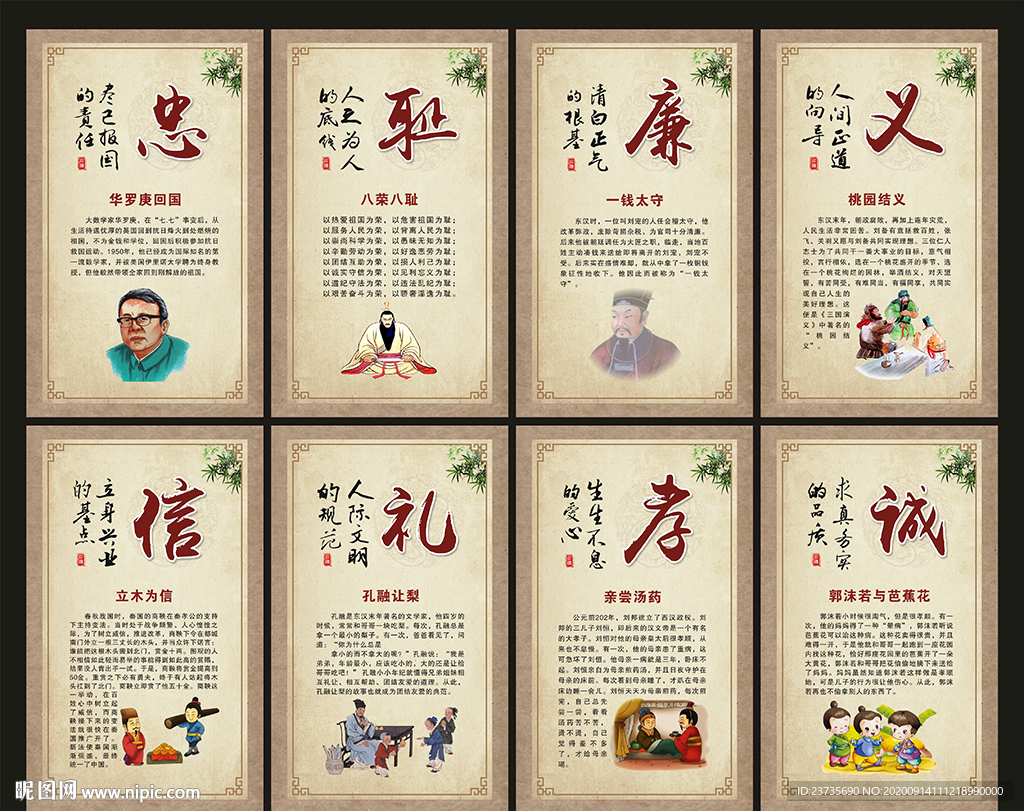 忠
尽己报国
的责任
华罗庚回国
大数学家华罗庚，在“七.七”事变后，从
生活待遇优厚的英国回到抗日烽火到处燃烧的
祖国，不为金钱和学位，回国后积极参加抗日
救国运动。1950年，他已经成为国际知名的第
一流数学家，并被美国伊里诺大学聘为终身教
授，但他毅然带领全家回到刚解放的祖国。
耻
人之为人
的底线
八荣八耻
以热爱祖国为荣，以危害祖国为耻；
以服务人民为荣，以背离人民为耻；
以崇尚科学为荣，以愚昧无知为耻；
以辛勤劳动为荣，以好逸恶劳为耻；
以团结互助为荣，以损人利己为耻；
以诚实守信为荣，以见利忘义为耻；
以遵纪守法为荣，以违法乱纪为耻；
以艰苦奋斗为荣，以骄奢淫逸为耻。
廉
清白正气
的根基
一钱太守
东汉时，一位叫刘宠的人任会稽太守，他
改革弊政，废除苛捐杂税，为官司十分清廉。
后来他被朝廷调任为大匠之职，临走，当地百
姓主动凑钱来送给即将离开的刘宠，刘宠不
受。后来实在盛情难却，就从中拿了一枚铜钱
象征性地收下。他因此而被称为“一钱太
守”。
义
人间正道
的向导
桃园结义
东汉末年，朝政腐败，再加上连年灾荒，
人民生活非常困苦。刘备有意拯救百姓，张
飞、关羽又愿与刘备共同实现理想。三位仁人
志士为了共同干一番大事业的目标，意气相
投，言行相依，选在一个桃花盛开的季节、选
在一个桃花绚烂的园林，举酒结义，对天盟
誓，有苦同受，有难同当，有福同享，共同实
现自己人生的
美好理想。这
便是《三国演
义》中著名的
“桃园结
义”。
信
立身兴业
的基点
立木为信
春秋战国时，秦国的商鞅在秦孝公的支持
下主持变法。当时处于战争频繁、人心惶惶之
际，为了树立威信，推进改革，商鞅下令在都城
南门外立一根三丈长的木头，并当众许下诺言：
谁能把这根木头搬到北门，赏金十两。围观的人
不相信如此轻而易举的事能得到如此高的赏赐，
结果没人肯出手一试。于是，商鞅将赏金提高到
50金。重赏之下必有勇夫，终于有人站起将木
头扛到了北门。商鞅立即赏了他五十金。商鞅这
一举动，在百
姓心中树立起
了威信，而商
鞅接下来的变
法就很快在秦
国推广开了。
新法使秦国渐
渐强盛，最终
统一了中国。
礼
人际文明
的规范
孔融让梨
孔融是东汉末年著名的文学家，他四岁的
时候，常常和哥哥一块吃梨。每次，孔融总是
拿一个最小的梨子。有一次，爸爸看见了，问
道：“你为什么总是
拿小的而不拿大的呢？”孔融说：“我是
弟弟，年龄最小，应该吃小的，大的还是让给
哥哥吃吧！”孔融小小年纪就懂得兄弟姐妹相
互礼让、相互帮助、团结友爱的道理。从此，
孔融让梨的故事也就成为团结友爱的典范。
孝
生生不息
的爱心
亲尝汤药
公元前202年，刘邦建立了西汉政权。刘
邦的三儿子刘恒，即后来的汉文帝是一个有名
的大孝子。刘恒对他的母亲皇太后很孝顺，从
来也不怠慢。有一次，他的母亲患了重病，这
可急坏了刘恒。他母亲一病就是三年，卧床不
起。刘恒亲自为母亲煎药汤，并且日夜守护在
母亲的床前。每次看到母亲睡了，才趴在母亲
床边睡一会儿。刘恒天天为母亲煎药，每次煎
完，自己总先
尝一尝，看看
汤药苦不苦，
烫不烫，自己
觉得差不多
了，才给母亲
喝。
诚
求真务实
的品质
郭沫若与芭蕉花
郭沫若小时候很淘气，但是很孝顺。有一
次，他的妈妈得了一种“晕病”，郭沫若听说
芭蕉花可以治这种病。这种花卖得很贵，并且
难得一开，于是他就和哥哥一起跑到一座花园
内找这种花，恰好那座花园里的芭蕉开了一朵
大黄花，郭沫若和哥哥把花偷偷地摘下来送给
了妈妈。妈妈虽然知道郭沫若这样做是孝敬
她，可是儿子的行为很让他伤心。从此，郭沫
若再也不偷拿别人的东西了。
昵图网 www.nipic.com
ID:23735690 NO:20200914111218990000